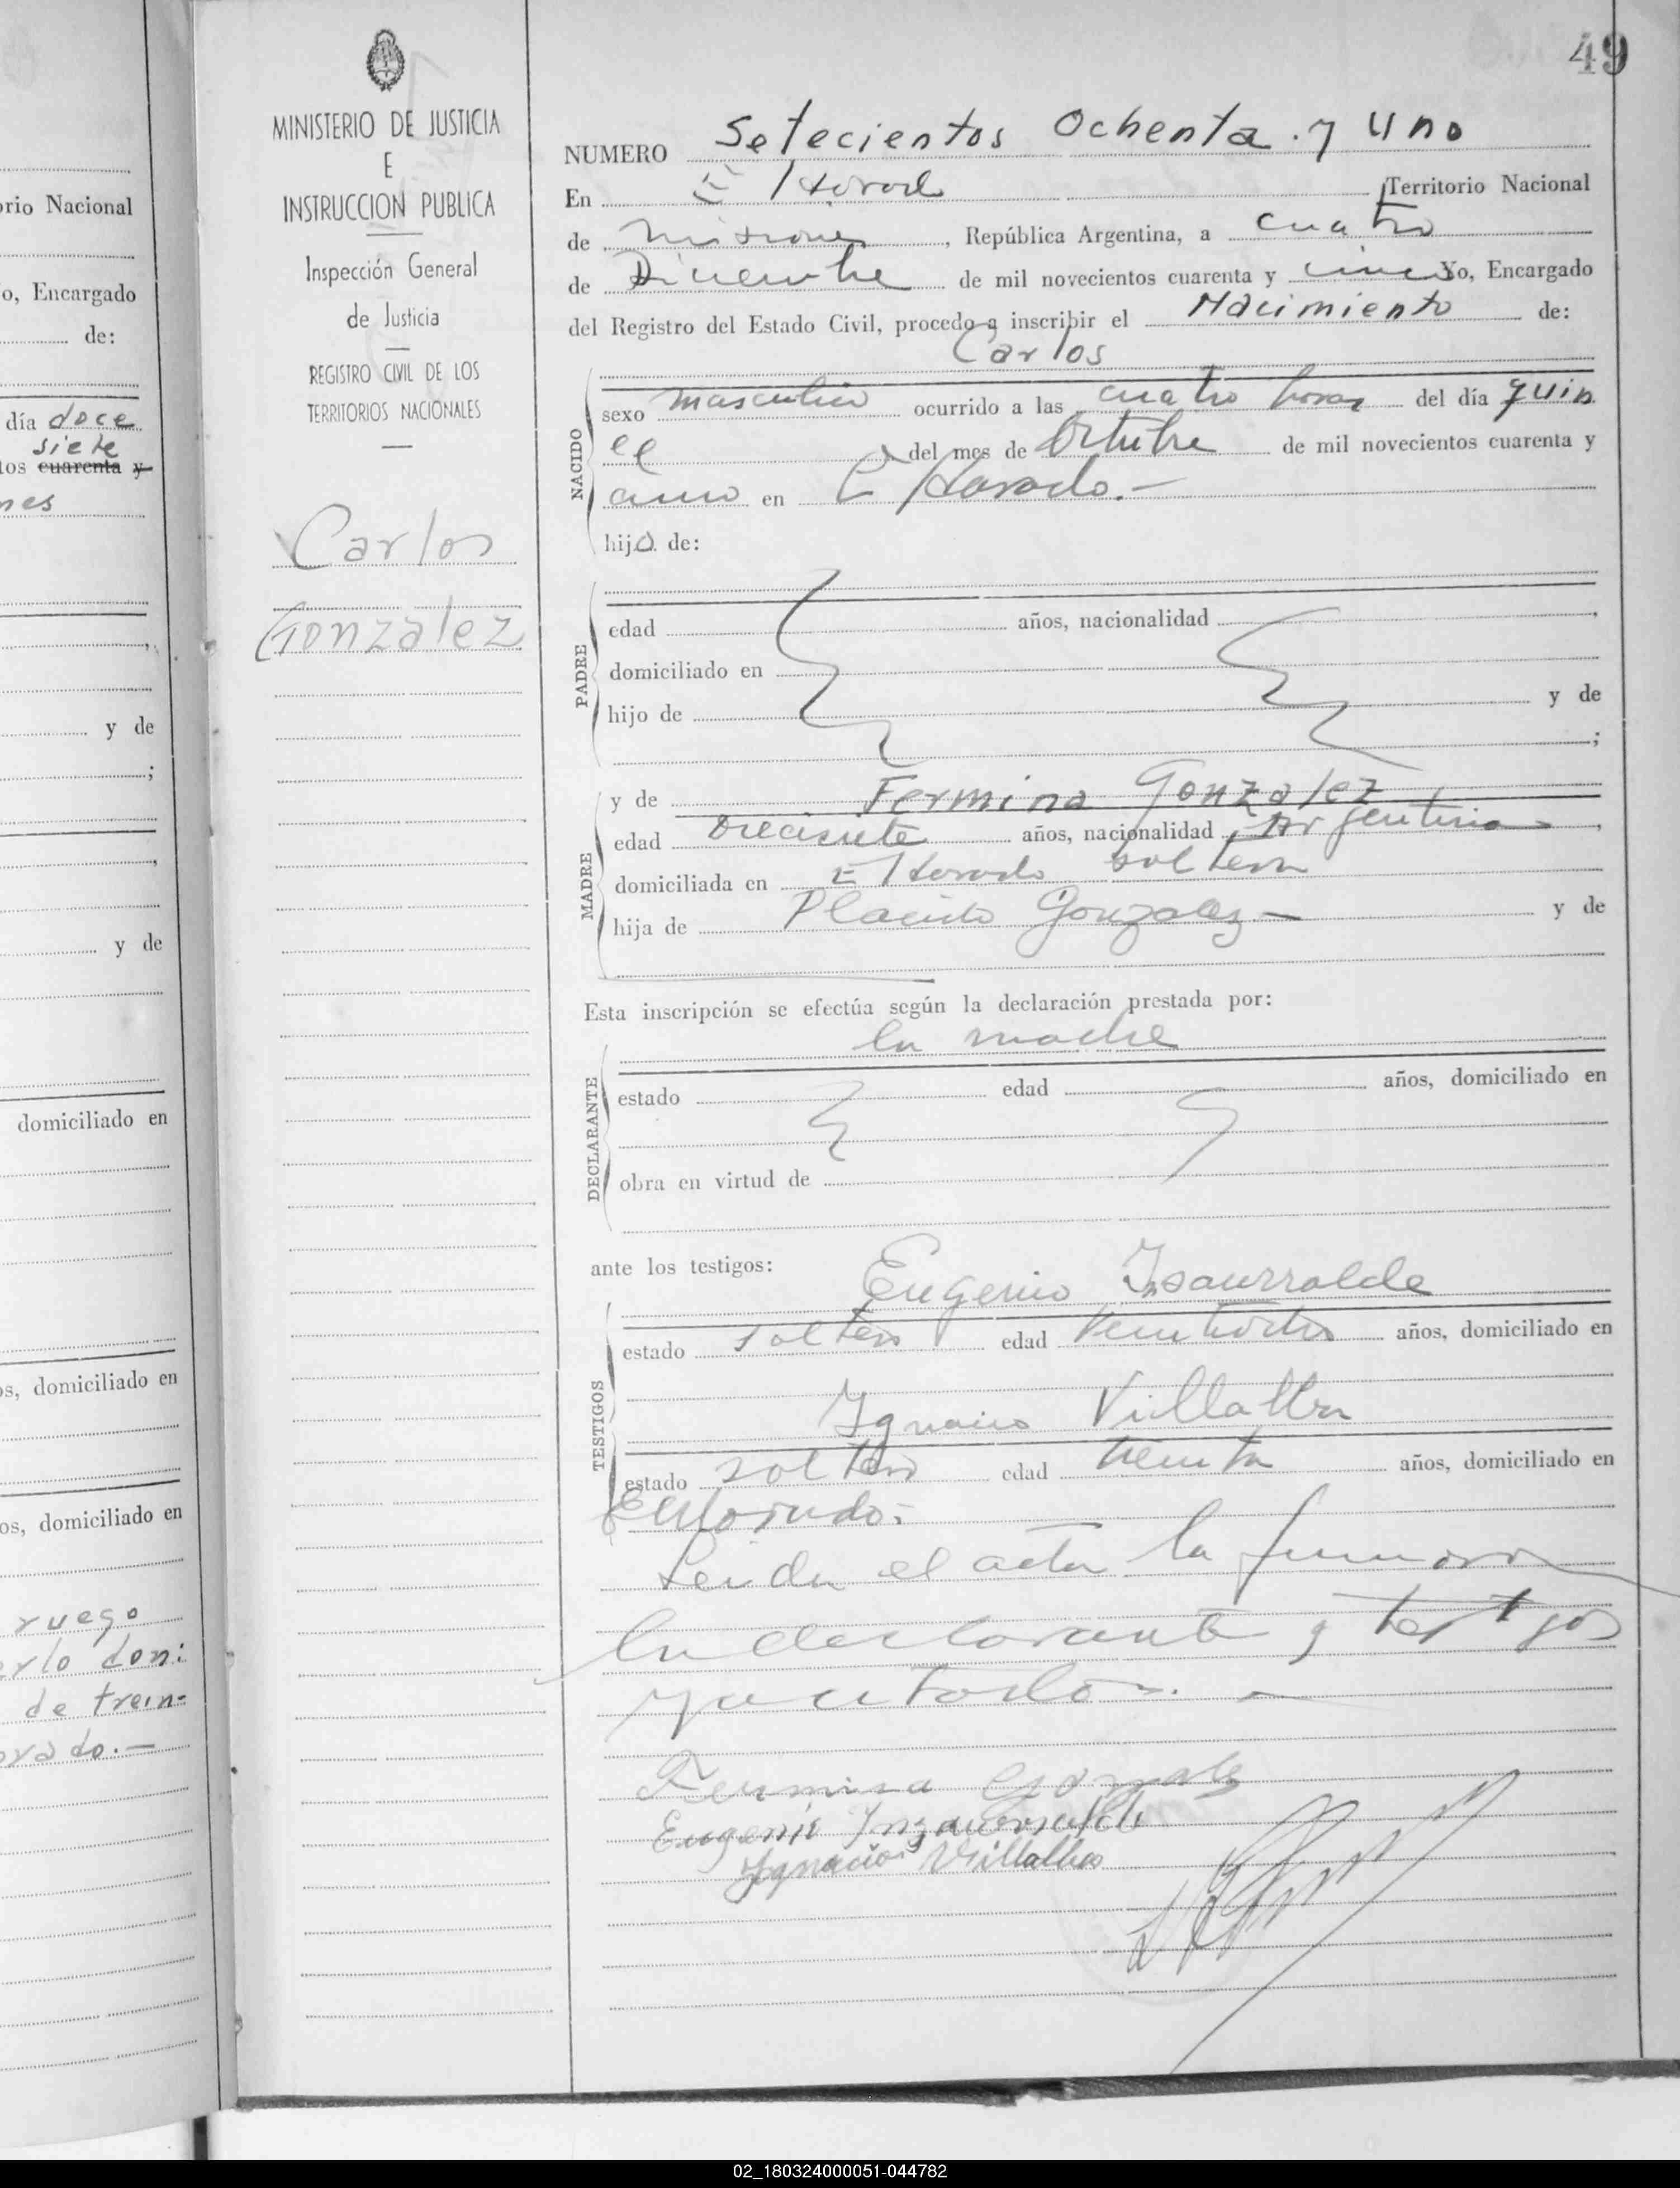 49
orio Nacional
o, Encargado
de:
día doce
siete
tos cuarenta y
nes
y de
;
y de
domiciliado en
os, domiciliado en
os, domiciliado en
ruego
de trein-
MINISTERIO DE JUSTICIA
E
INSTRUCCION PUBLICA
Inspección General
de Justicia
REGISTRO CIVIL DE LOS
TERRITORIOS NACIONALES
Carlos
Gonzalez
NUMERO Setecientos Ochenta y Uno
En Eldorado Territorio Nacional
de Misiones, República Argentina, a cuatro
de Diciembre de mil novecientos cuarenta y cinco Yo, Encargado
del Registro del Estado Civil, procedo a inscribir el Nacimiento de:
Carlos
NACIDO
sexo masculino ocurrido a las cuatro horas del día quin
ce del mes de Octubre de mil novecientos cuarenta y
cinco en Eldorado.-
hijo de:
PADRE
edad años, nacionalidad ,
domiciliado en
hijo de y de
;
MADRE
y de Fermina Gonzalez
edad Diecisiete años, nacionalidad Argentina,
domiciliada en Eldorado soltera
hija de Placido Gonzalez - y de
Esta inscripción se efectúa según la declaración prestada por:
la madre
DECLARANTE
estado edad años, domiciliado en
obra en virtud de
ante los testigos:
TESTIGOS
Eugenio Insaurralde
estado soltero edad años, domiciliado en
Ignacio Villalba
estado soltero edad treinta años, domiciliado en
Eldorado.
Leida el acta la firmaron
la declarante y testigos
Fermina Gonzalez
Eugenio Inzaurralde
Ignacio Villalba
02_180324000051-044782